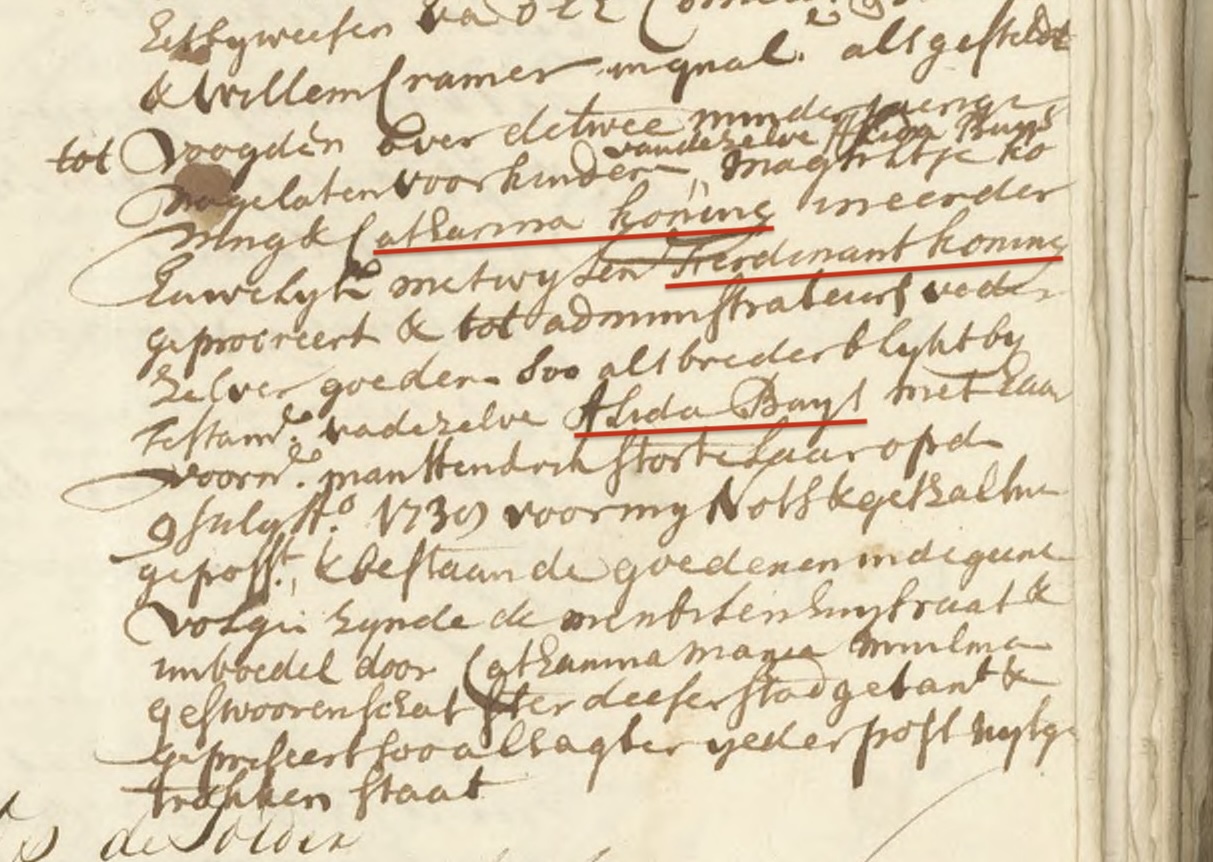 Willem Cramer in qual. als gestelde
tot Voogden over de twee minderjarige
van dezelve Alida Buys
nagelaten voorkinderen, Magrietje Ko
ning & Catharina Koning in eerder
Euwelyk met wylen Ferdinant Koning
geprocreert & tot administrateurs vader
zelver goederen Soo als breder blykt by
Testamt. vadezelve Alida Buys met haar
voorn. man Hendrik Stortelaar op d
9 July Ao. 1739 voor my Nots & getaltuy
gepasst., & bestaan de goederen in de geene
volgt zynde de meubilen huysraat &
inboedel door Catharina Maria
geswooren schatster deeser stad getaxt &
gepriseert soo als agter yeder post uytge
trokken staat